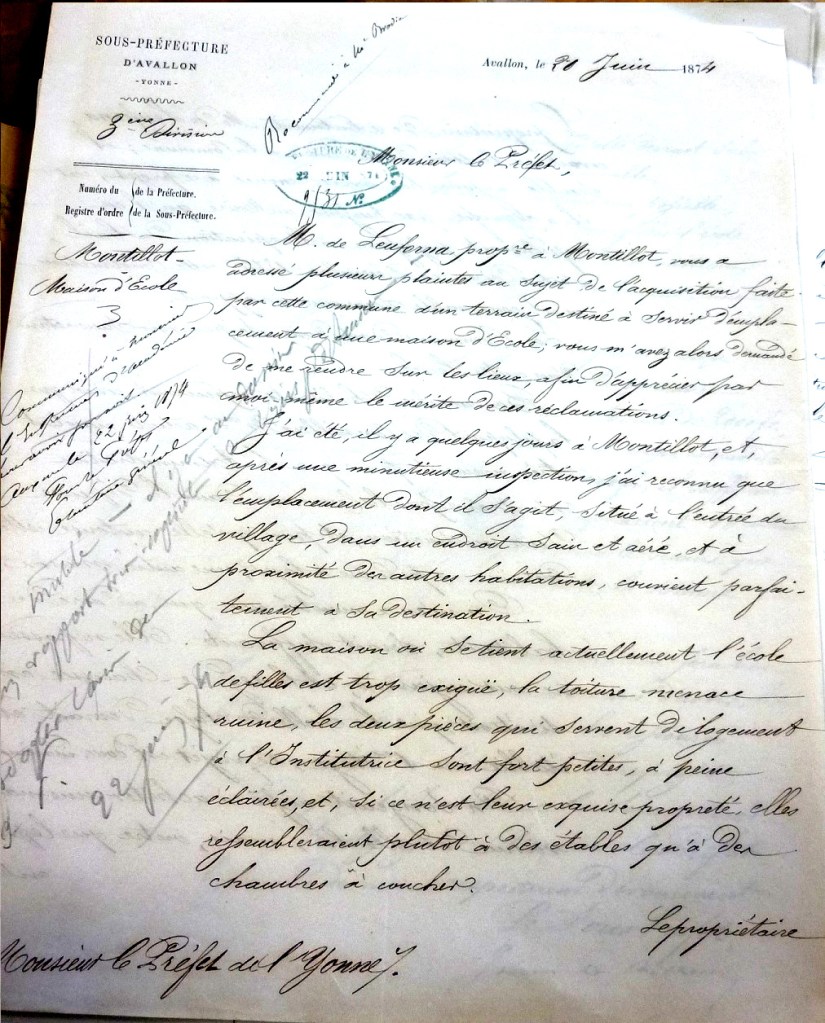 SOUS-PRÉFECTURE
D'AVALLON
- YONNE -
3ème Division
Avallon, le 20 Juin 1874
Recommandé à
22 JUIN 74
Monsieur le Préfet,
Numéro du de la Préfecture.
Registre d'ordre de la Sous-Préfecture.
Montillot
Maison d'Ecole
3
M. de Leuforna propre à Montillot, vous a
adressé plusieurs plaintes au sujet de l'acquisition faite
par cette commune d'un terrain destiné à servir d'empla-
cement à une maison d'Ecole; vous m'avez alors demandé
de me rendre sur les lieux, afin d'apprécier par
moi-même le mérite de ces réclamations.
J'ai été, il y a quelques jours à Montillot, et,
après une minutieuse inspection, j'ai reconnu que
l'emplacement dont il s'agit, situé à l'entrée du
village, dans un endroit sain et aéré, et à
proximité des autres habitations, convient parfai-
tement à sa destination.
La maison où se tient actuellement l'école
de filles est trop exiguë, la toiture menace
ruine, les deux pièces qui servent de logement
à l'Institutrice sont fort petites, à peine
éclairées, et, si ce n'est leur exquise propreté, elles
ressembleraient plutôt à des étables qu'à des
chambres à coucher.
Le propriétaire
Communiqué à Monsieur
l'Inspecteur d'académie
22 juin 1874
Pour le Préfet
Secrétaire général
Inutile - il y a au dossier
un rapport de
22 juin 74
Monsieur le Préfet de l'Yonne.